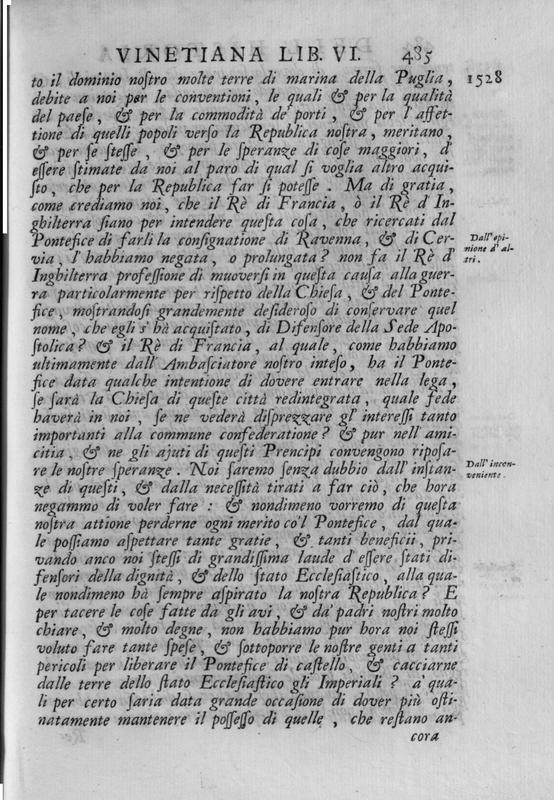 VINETIANA LIB. VI. 485
to il dominio noſtro molte terre di marina della Puglia, 1528
debite a noi per le conventioni, le quali & per la qualità
del paeſe, & per la commodità de' porti, & per l'affet-
tione di quelli popoli verſo la Republica noſtra, meritano,
& per ſe ſteſſe, & per le ſperanze di coſe maggiori, d'
eſſere ſtimate da noi al paro di qual ſi voglia altro acqui-
ſto, che per la Republica far ſi poteſſe. Ma di gratia,
come crediamo noi, che il Rè di Francia, ò il Rè d'In-
ghilterra ſiano per intendere queſta coſa, che ricercati dal
Pontefice di farli la conſignatione di Ravenna, & di Cer-
via, l'habbiamo negata, o prolungata? non fa il Rè d'
Inghilterra profeſſione di muoverſi in queſta cauſa alla guer-
ra particolarmente per riſpetto della Chieſa, & del Ponte-
fice, moſtrandoſi grandemente deſideroſo di conſervare quel
nome, che egli s'hà acquiſtato, di Difenſore della Sede Apo-
ſtolica? & il Rè di Francia, al quale, come habbiamo
ultimamente dall'Ambaſciatore noſtro inteſo, ha il Ponte-
fice data qualche intentione di dovere entrare nella lega,
ſe ſarà la Chieſa di queſte città redintegrata, quale fede
haverà in noi, ſe ne vederà diſprezzare gl'intereſſi tanto
importanti alla commune confederatione? & pur nell'ami-
citia, & ne gli ajuti di queſti Prencipi convengono ripoſa-
re le noſtre ſperanze. Noi ſaremo ſenza dubbio dall'inſtan-
ze di queſti, & dalla neceſſità tirati a far ciò, che hora
negammo di voler fare: & nondimeno vorremo di queſta
noſtra attione perderne ogni merito co'l Pontefice, dal qua-
le poſſiamo aſpettare tante gratie, & tanti beneficii, pri-
vando anco noi ſteſſi di grandiſſima laude d'eſſere ſtati di-
fenſori della dignità, & dello ſtato Eccleſiaſtico, alla qua-
le nondimeno hà ſempre aſpirato la noſtra Republica? E
per tacere le coſe fatte da gli avi, & da' padri noſtri molto
chiare, & molto degne, non habbiamo pur hora noi ſteſſi
voluto fare tante ſpeſe, & ſottoporre le noſtre genti a tanti
pericoli per liberare il Pontefice di caſtello, & cacciarne
dalle terre dello ſtato Eccleſiaſtico gli Imperiali? a' qua-
li per certo ſaria data grande occaſione di dover più oſti-
natamente mantenere il poſſeſſo di quelle, che reſtano an-
cora
Dall'opi-
nione d'al-
tri.
Dall'incon-
veniente.